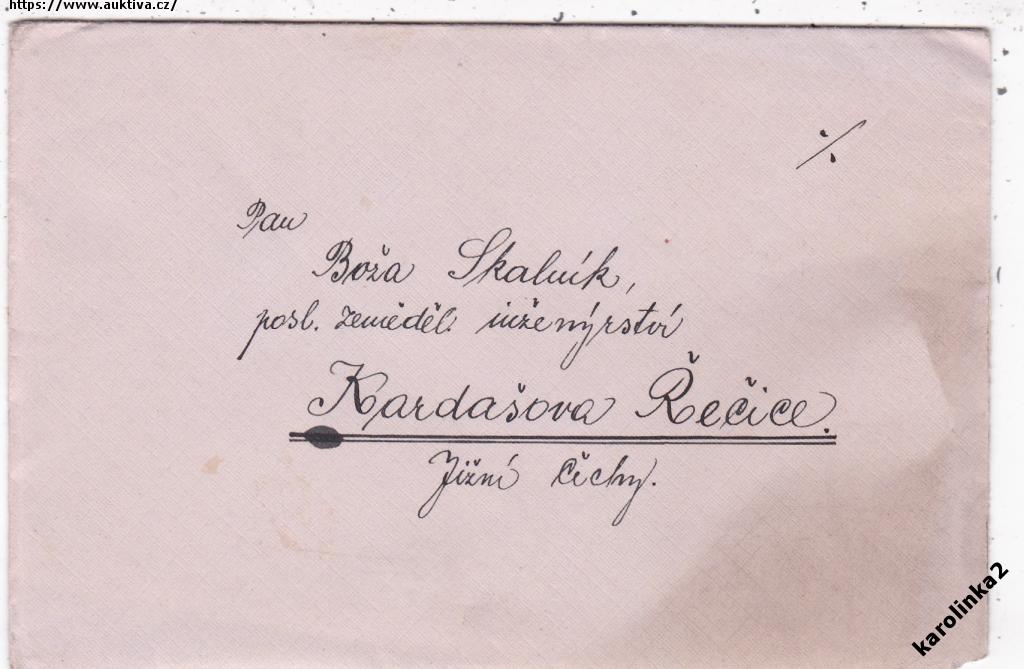 https://www.auktiva.cz/
./.
Pan
Boža Skalník,
posl. zeměděl. inženýrství
Kardašova Řečice.
Jižní Čechy.
karolinka2